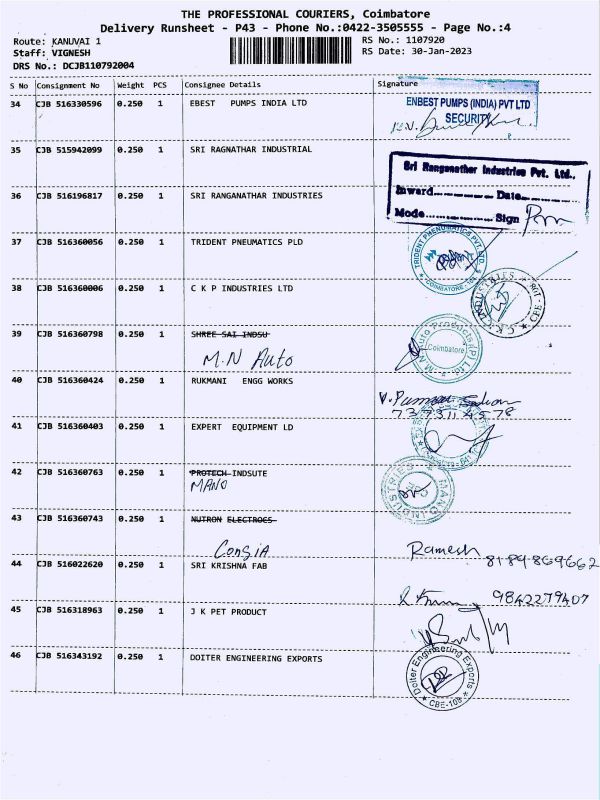 THE PROFESSIONAL COURIERS, Coimbatore
Delivery Runsheet - P43 - Phone No.:0422-3505555 - Page No.:4
Route: KANUVAI 1 RS No.: 1107920
Staff: VIGNESH RS Date: 30-Jan-2023
DRS No.: DCJB110792004
S No Consignment No Weight PCS Consignee Details Signature
34 CJB 516330596 0.250 1 EBEST PUMPS INDIA LTD
ENBEST PUMPS (INDIA) PVT LTD
SECURITY
35 CJB 515942099 0.250 1 SRI RAGNATHAR INDUSTRIAL
Sri Ranganathar Industries Pvt. Ltd.,
36 CJB 516196817 0.250 1 SRI RANGANATHAR INDUSTRIES
Inward Date
Mode Sign
37 CJB 516360056 0.250 1 TRIDENT PNEUMATICS PLD
TRIDENT PNEUMATICS PVT. LTD.
COIMBATORE-108
38 CJB 516360006 0.250 1 C K P INDUSTRIES LTD
C.K.P. INDUSTRIES CBE
39 CJB 516360798 0.250 1 SHREE SAI INDSU
M.N Auto
M.N. Auto Products (P) Ltd
Coimbatore
40 CJB 516360424 0.250 1 RUKMANI ENGG WORKS
41 CJB 516360403 0.250 1 EXPERT EQUIPMENT LD
42 CJB 516360763 0.250 1 PROTECH INDSUTE
MANO
MANO INDUSTRIES
CBE
43 CJB 516360743 0.250 1 NUTRON ELECTROCS
Consia
Ramesh 8189869662
44 CJB 516022620 0.250 1 SRI KRISHNA FAB
9842279407
45 CJB 516318963 0.250 1 J K PET PRODUCT
46 CJB 516343192 0.250 1 DOITER ENGINEERING EXPORTS
Doiter Engineering Exports
CBE-108